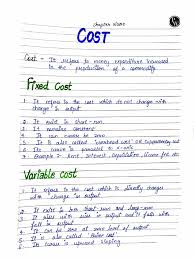 Chapter Name
COST
Cost - It refers to money expenditure incurred
to the production of a commodity
Fixed Cost
1. It refers to the cost which do not change with
change in output
2. It exist in short-run
3. It remains constant
4. It can never be zero
5. It is also called "overhead cost" or supplementary cost
6. It's curve is parallel to x-axis
7. Example: Rent, interest, liquidation, license fee etc
Variable Cost
1. It refers to the cost which is directly changes
with change in output
2. It exist in both short-run and long-run
3. It rises with rise in output and it falls with
fall in output
4. It can be zero at zero level of output
5. It is also called
6. It's curve is upward sloping